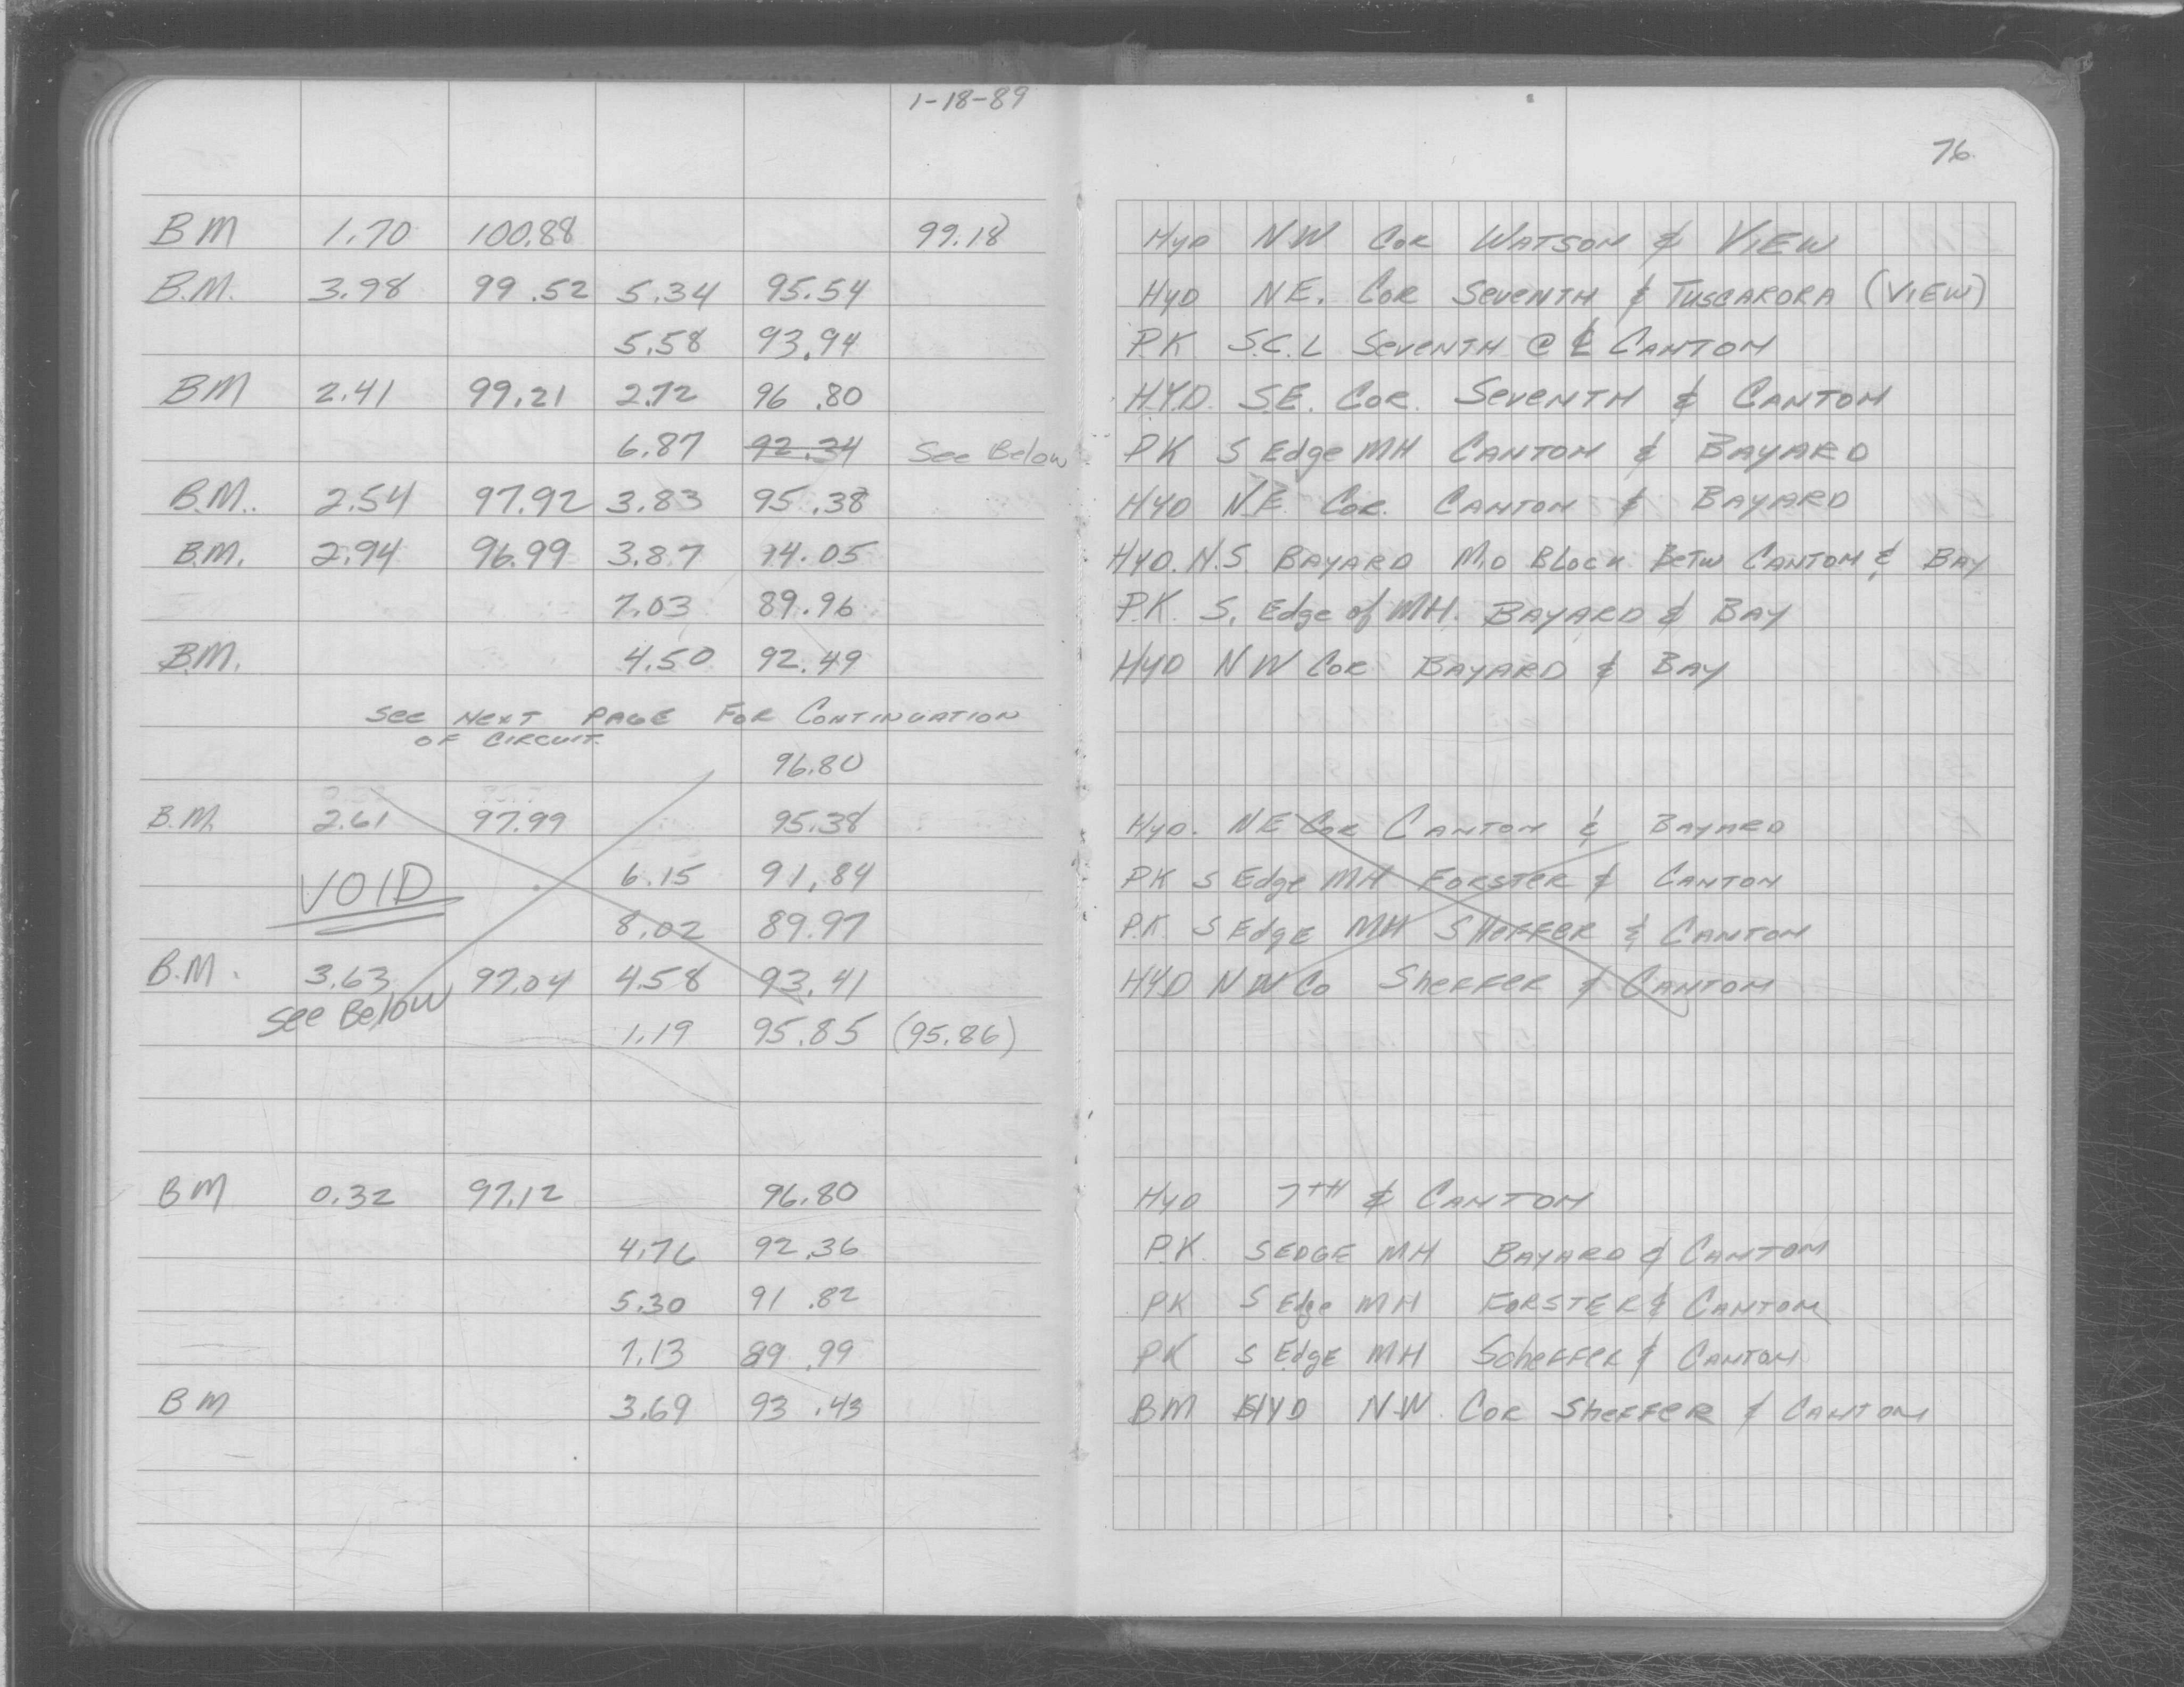 1-18-89
76
BM 1.70 100.88 99.18 Hyd NW Cor Watson & View
B.M. 3.98 99.52 5.34 95.54 Hyd N.E. Cor Seventh & Tuscarora (View)
5.58 93.94 PK S.C.L Seventh @ ℄ Canton
BM 2.41 99.21 2.72 96.80 HYD. S.E. Cor. Seventh & Canton
6.87 92.34 See Below PK S Edge MH Canton & Bayard
B.M. 2.54 97.92 3.83 95.38 Hyd N.E. Cor. Canton & Bayard
B.M. 2.94 96.99 3.87 94.05 Hyd. N.S. Bayard Mid Block Betw Canton & Bay
7.03 89.96 P.K. S. Edge of MH. Bayard & Bay
B.M. 4.50 92.49 Hyd NW Cor Bayard & Bay
See Next Page For Continuation
of Circuit.
96.80
B.M. 2.61 97.99 95.38 Hyd. NE Cor Canton & Bayard
VOID 6.15 91.84 PK S Edge MH Forster & Canton
8.02 89.97 P.K. S Edge MH Sheffer & Canton
B.M. 3.63 97.04 4.58 93.41 HYD NW Co Sheffer & Canton
See Below 1.19 95.85 (95.86)
BM 0.32 97.12 96.80 Hyd 7TH & Canton
4.76 92.36 P.K. S EDGE MH Bayard & Canton
5.30 91.82 PK S Edge MH Forster & Canton
7.13 89.99 PK S Edge MH Scheffer & Canton
BM 3.69 93.43 BM HYD N.W. Cor Sheffer & Canton